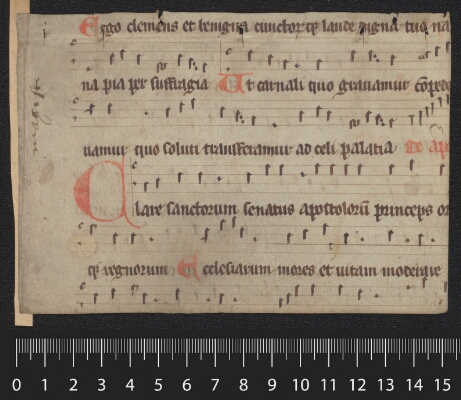 Ergo clemens et benigna cunctorumque laude digna tuo na
na pia per suffragia Ut carnali quo gravamur compede
uamur quo soluti transferamur ad celi palatia De apo
Clare sanctorum senatus apostolorum princeps or
que regnorum Ecclesiarum mores et uitam moderare
0 1 2 3 4 5 6 7 8 9 10 11 12 13 14 15